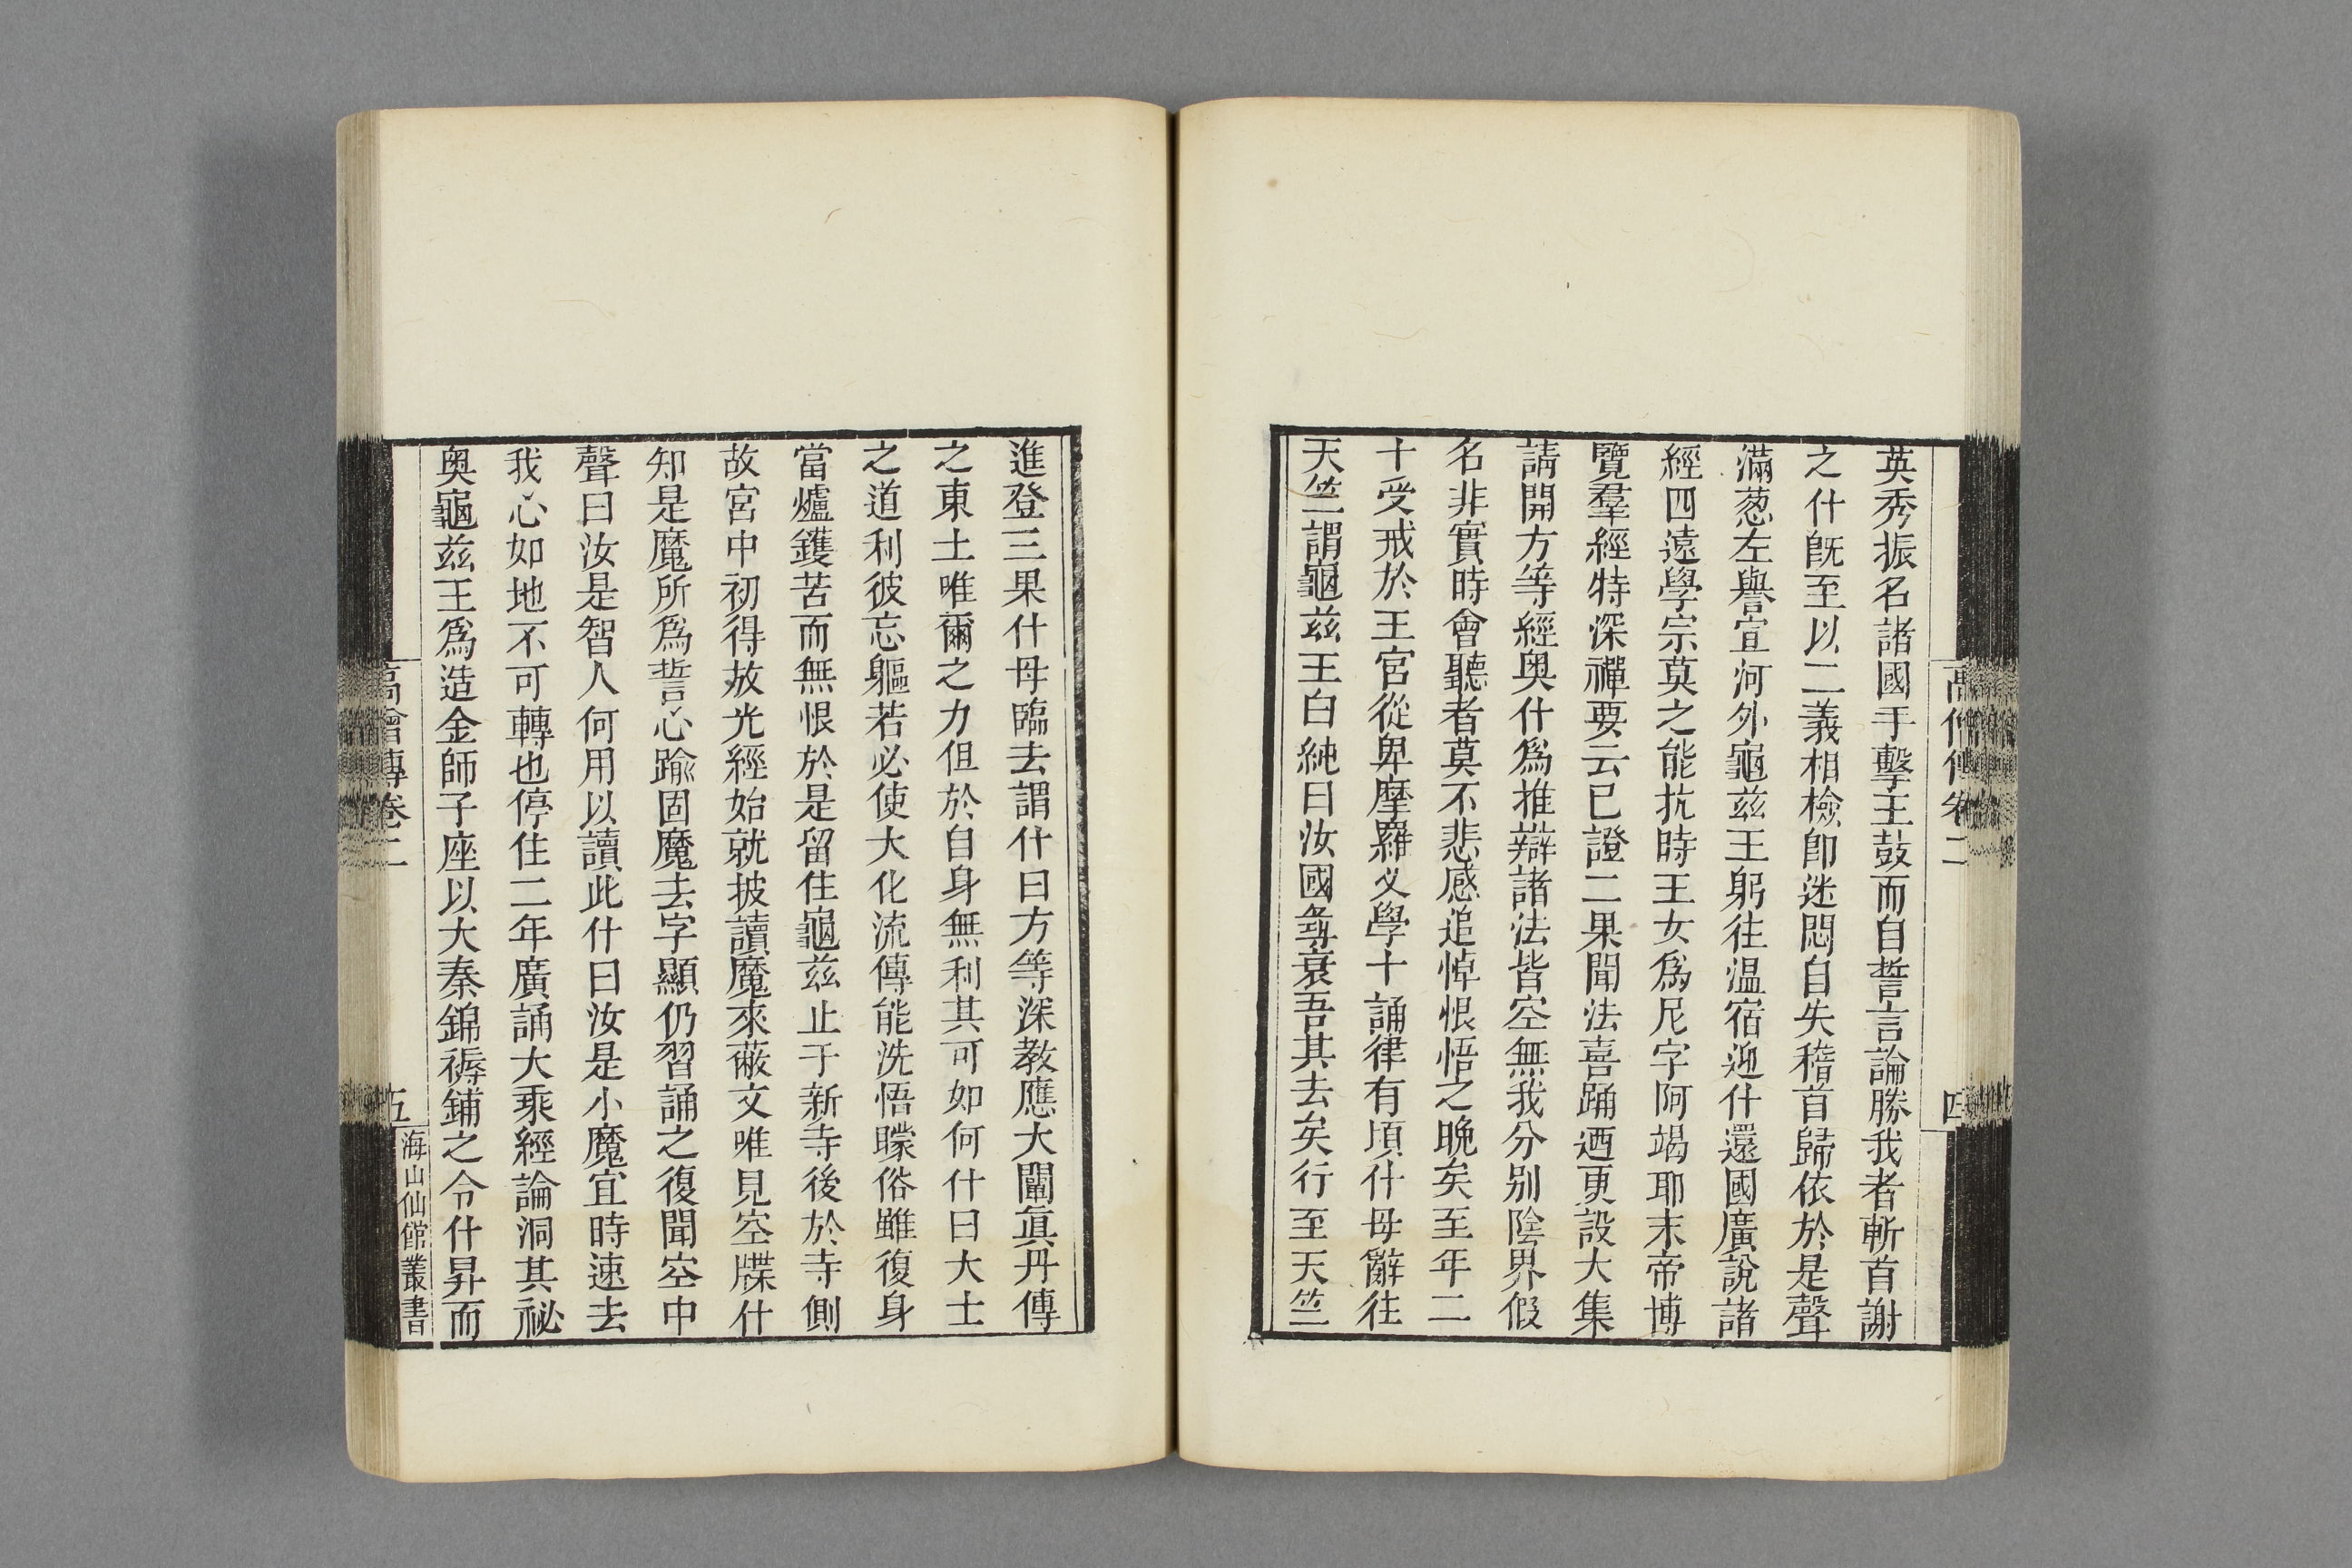 英秀振名諸國手擊王鼓而自誓言論勝我者斬首謝
之什既至以二義相檢卽迷悶自失稽首歸依於是聲
滿葱左譽宣河外龜茲王躬往温宿迎什還國廣說諸
經四遠學宗莫之能抗時王女爲尼字阿竭耶末帝博
覽羣經特深禪要云已證二果聞法喜踊迺更設大集
請開方等經奥什爲推辯諸法皆空無我分别陰界假
名非實時會聽者莫不悲感追悼恨悟之晚矣至年二
十受戒於王宮從卑摩羅叉學十誦律有頃什母辭往
天竺謂龜茲王白純曰汝國尋衰吾其去矣行至天竺
高僧傳卷二
四
進登三果什母臨去謂什曰方等深教應大闡眞丹傳
之東土唯爾之力但於自身無利其可如何什曰大士
之道利彼忘軀若必使大化流傳能洗悟矇俗雖復身
當爐鑊苦而無恨於是留住龜茲止于新寺後於寺側
故宮中初得放光經始就披讀魔來蔽文唯見空牒什
知是魔所爲誓心踰固魔去字顯仍習誦之復聞空中
聲曰汝是智人何用以讀此什曰汝是小魔宜時速去
我心如地不可轉也停住二年廣誦大乘經論洞其祕
奥龜茲王爲造金師子座以大秦錦褥鋪之令什昇而
高僧傳卷二
五
海山仙館叢書